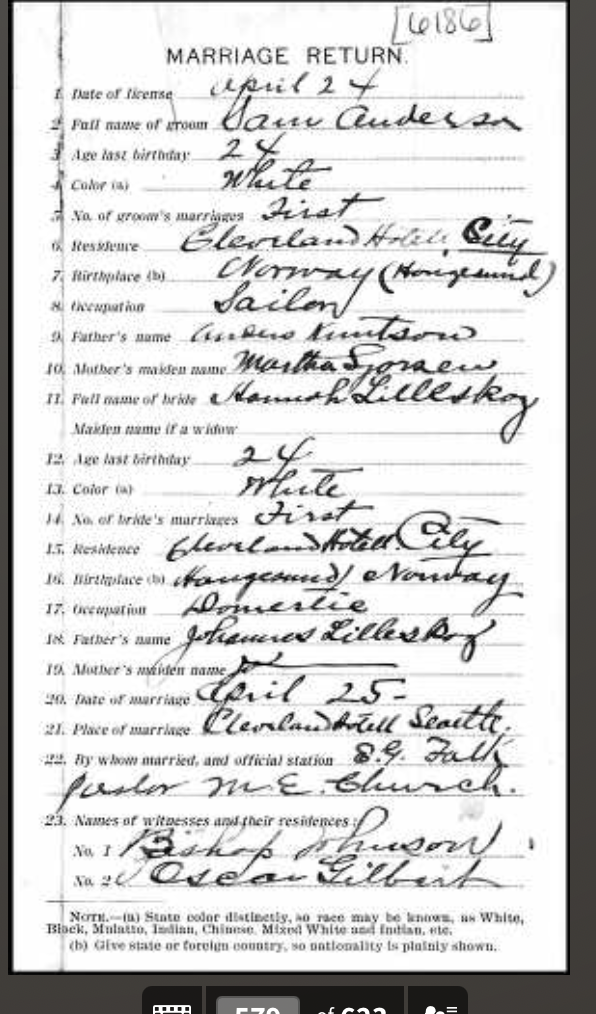 [6186]
MARRIAGE RETURN.
1. Date of license April 24
2. Full name of groom Sam Anderson
3. Age last birthday 24
4. Color (a) White
5. No. of groom's marriages First
6. Residence Cleveland Hotell City
7. Birthplace (b) Norway (Haugesund)
8. Occupation Sailor
9. Father's name Anders Knutson
10. Mother's maiden name Martha
11. Full name of bride Hannah Lilleskog
Maiden name if a widow
12. Age last birthday 24
13. Color (a) White
14. No. of bride's marriages First
15. Residence Cleveland Hotell City
16. Birthplace (b) Haugesund) Norway
17. Occupation Domestic
18. Father's name Johannes Lilleskog
19. Mother's maiden name
20. Date of marriage April 25-
21. Place of marriage Cleveland Hotell Seattle.
22. By whom married, and official station E.G. Falk
Pastor M.E. Church.
23. Names of witnesses and their residences:
No. 1 Bishop Johnson
No. 2 Oscar Gilbert
NOTE.—(a) State color distinctly, so race may be known, as White,
Black, Mulatto, Indian, Chinese, Mixed White and Indian, etc.
(b) Give state or foreign country, so nationality is plainly shown.
579 of 623